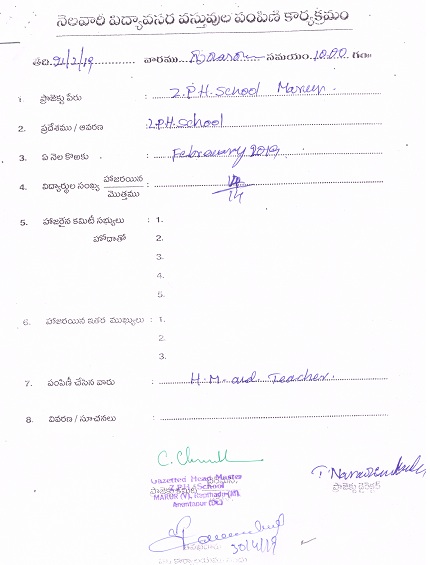 నెలవారీ విద్యావసర వస్తువుల పంపిణీ కార్యక్రమం
తేది. 21/2/19 వారము సమయం. 10.00 గం॥
1. ప్రాజెక్టు పేరు : Z.P.H. School Marur
2. ప్రదేశము / ఆవరణ : Z.P.H School
3. ఏ నెల కొఱకు : February 2019
4. విద్యార్థుల సంఖ్య హాజరయిన / మొత్తము : 14/14
5. హాజరైన కమిటీ సభ్యులు : 1.
హోదాతో 2.
3.
4.
5.
6. హాజరయిన ఇతర ముఖ్యులు : 1.
2.
3.
7. పంపిణీ చేసిన వారు : H.M. and Teacher.
8. వివరణ / సూచనలు :
Gazetted Head Master
Z.P.H. School
MARUR (V),
Anantapur (Dt.)
ప్రాజెక్టు డైరెక్టర్
30/4/19